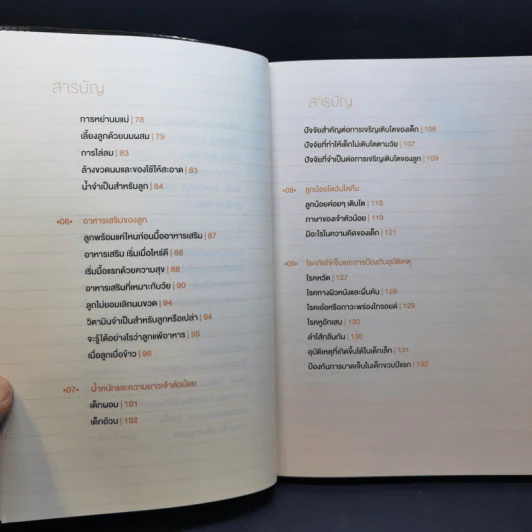 สารบัญ
การหย่านมแม่ | 78
เลี้ยงลูกด้วยนมผสม | 79
การไล่ลม | 83
ล้างขวดนมและของใช้ให้สะอาด | 83
น้ำจำเป็นสำหรับลูก | 84
•06• อาหารเสริมของลูก
ลูกพร้อมแค่ไหนก่อนมื้ออาหารเสริม | 87
อาหารเสริม เริ่มเมื่อไหร่ดี | 88
เริ่มมื้อแรกด้วยความสุข | 88
อาหารเสริมที่เหมาะกับวัย | 90
ลูกไม่ยอมเลิกนมขวด | 94
วิตามินจำเป็นสำหรับลูกหรือเปล่า | 94
จะรู้ได้อย่างไรว่าลูกแพ้อาหาร | 95
เมื่อลูกเบื่อข้าว | 96
•07• น้ำหนักและความยาวเจ้าตัวน้อย
เด็กผอม | 101
เด็กอ้วน | 102
สารบัญ
ปัจจัยสำคัญต่อการเจริญเติบโตของเด็ก | 106
ปัจจัยที่ทำให้เด็กไม่เติบโตตามวัย | 107
ปัจจัยที่จำเป็นต่อการเจริญเติบโตของลูก | 109
•08• ลูกน้อยโตวันโตคืน
ลูกน้อยค่อยๆ เติบโต | 113
ภาษาของเจ้าตัวน้อย | 119
มีอะไรในความคิดของเด็ก | 121
•09• โรคภัยไข้เจ็บและการป้องกันอุบัติเหตุ
โรคหวัด | 127
โรคทางผิวหนังและผื่นคัน | 128
โรคเอ๋อหรือภาวะพร่องไทรอยด์ | 129
โรคหูอักเสบ | 130
ลำไส้กลืนกัน | 130
อุบัติเหตุที่เกิดขึ้นได้ในเด็กเล็ก | 131
ป้องกันการบาดเจ็บในเด็กขวบปีแรก | 132